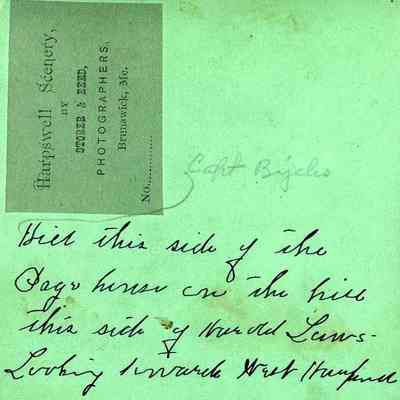 Harpswell Scenery,
BY
STORER & REED,
PHOTOGRAPHERS,
Brunswick, Me.
No.............
Capt
Hill this side of the
Page house on the hill
this side of Harold Laws-
Looking towards West Harpswell